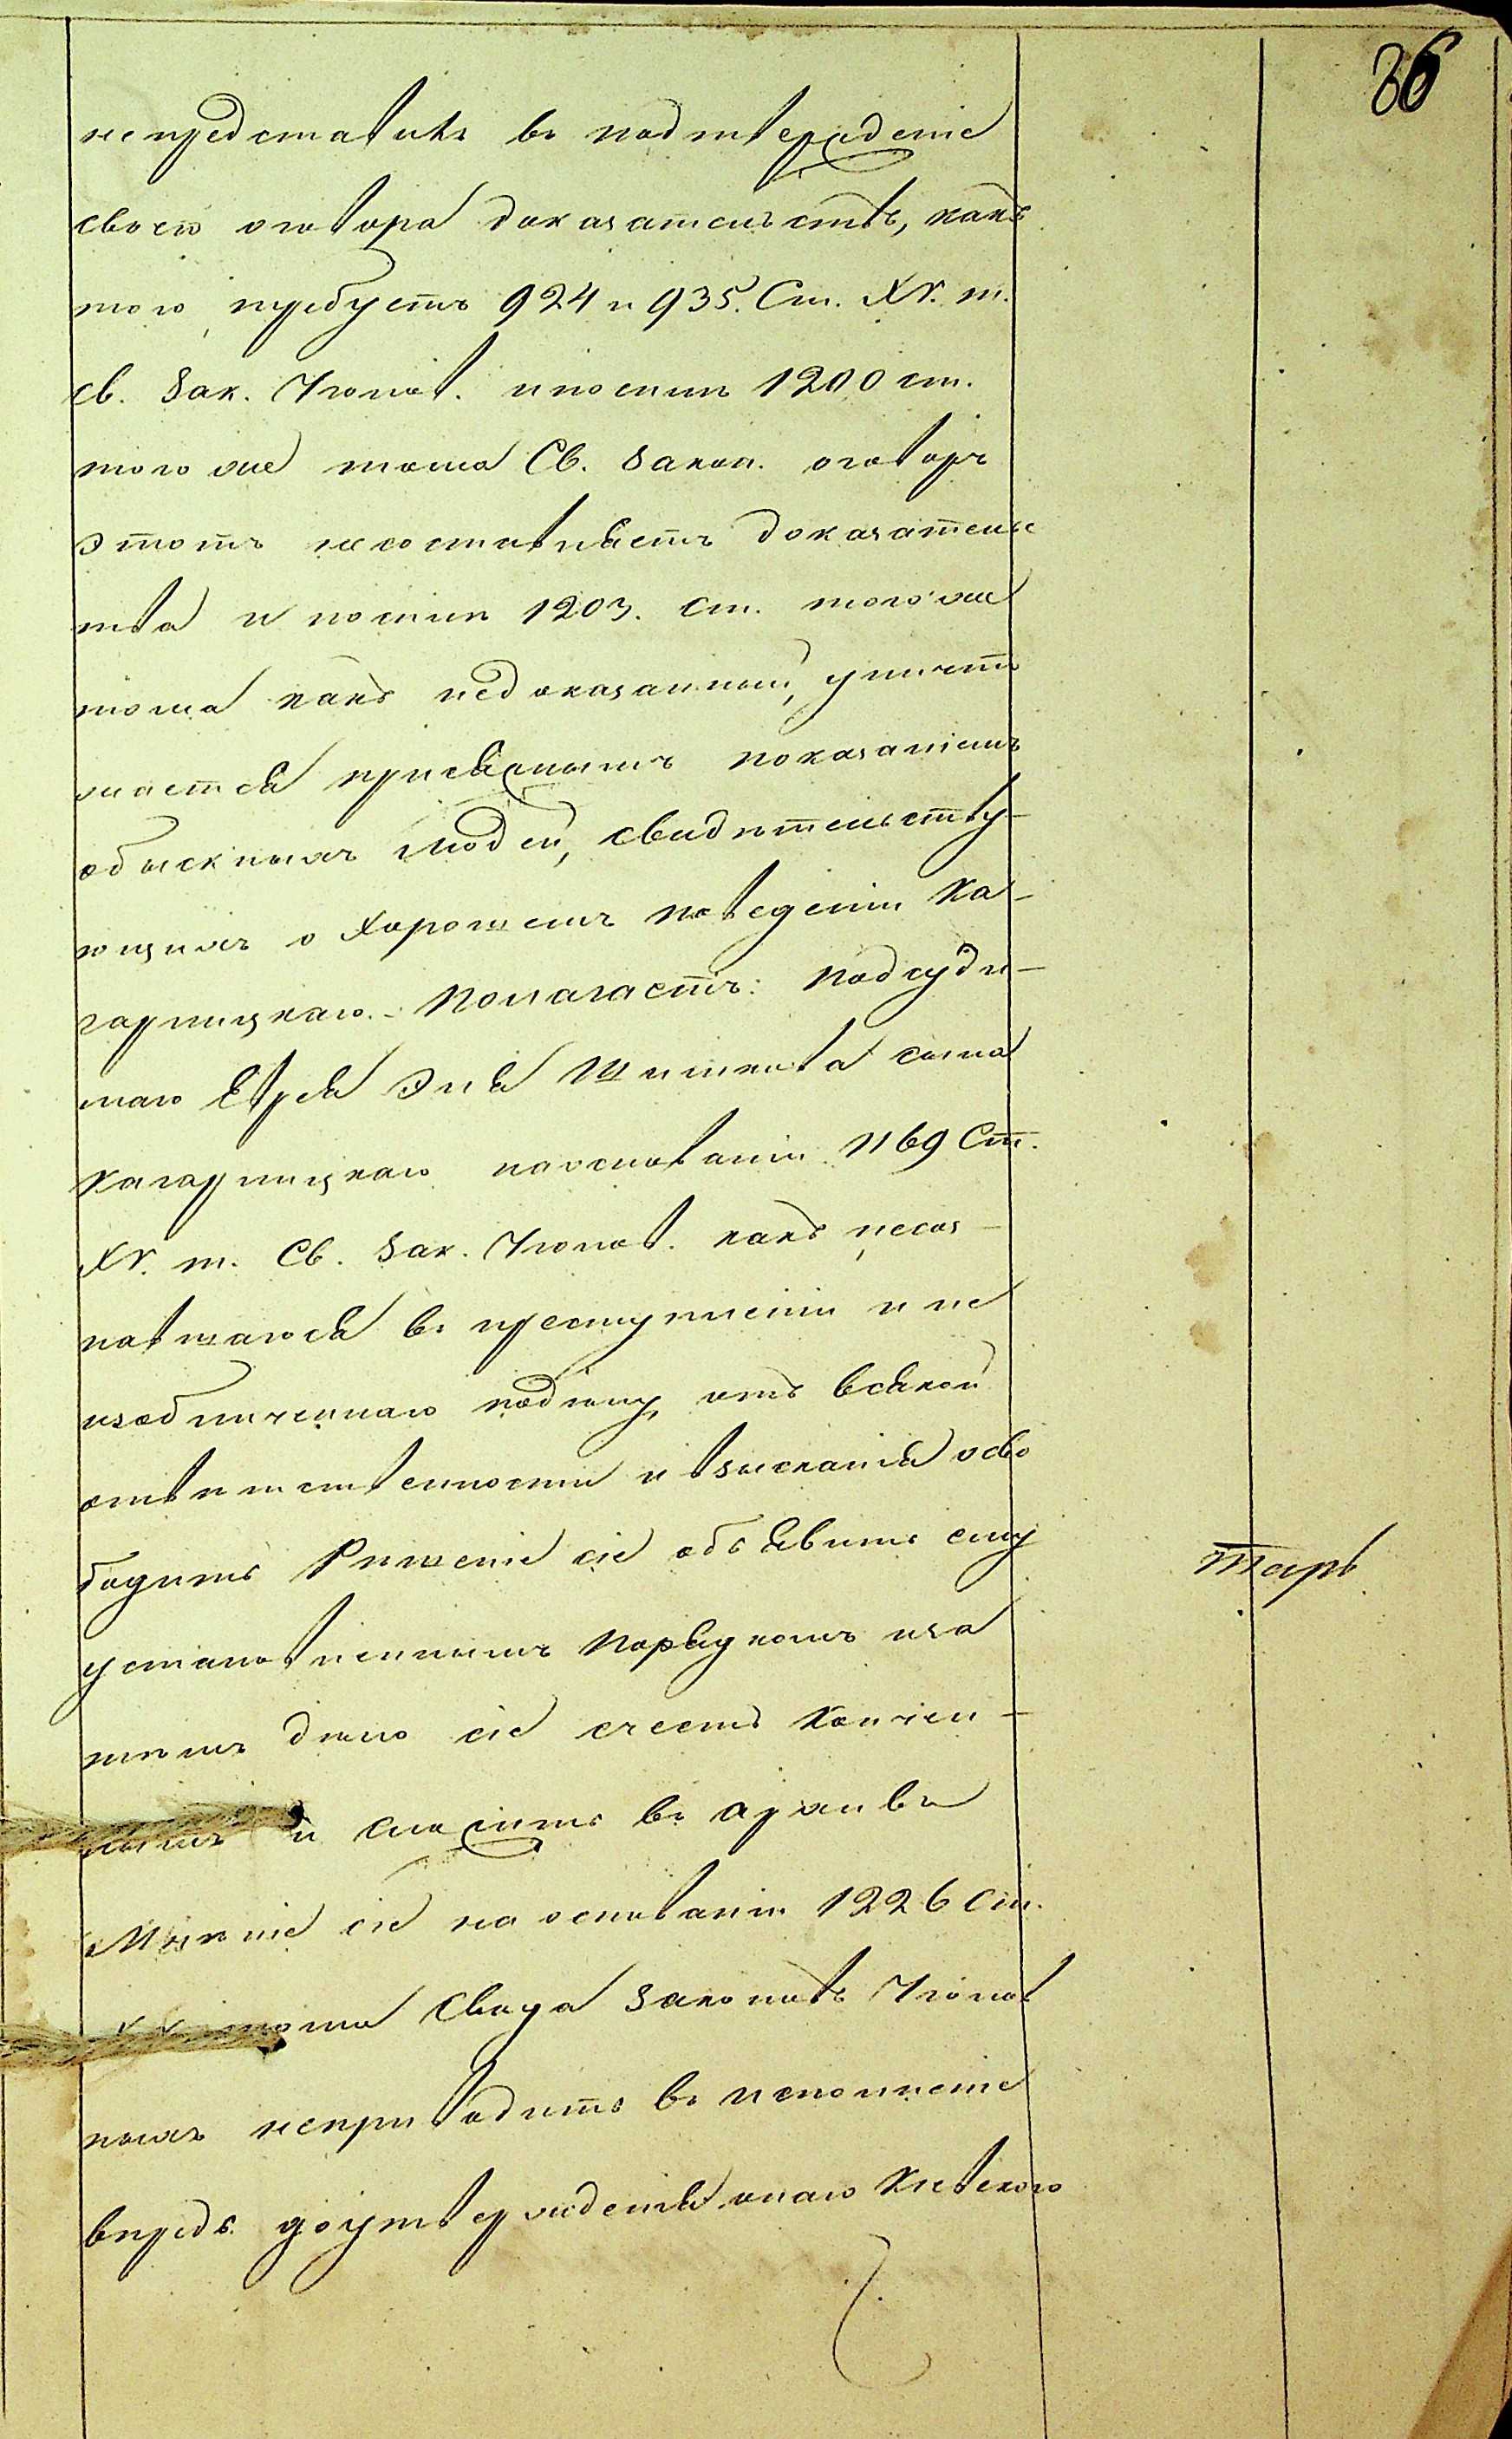 36
не представивъ въ подтвержденіе
своего оговора доказательствъ, какъ
того требуетъ 924 и 935. Ст. XV. т.
Св. Зак. Уголов. и по силѣ 1200 ст.
того же тома Св. Закон. оговоръ
этотъ несоставляетъ доказатель
тва и по силѣ 1203. Ст. того же
тома какъ недоказанный, уничто
жается присяжнымъ показаніемъ
обыскныхъ людей, свидѣтельству-
ющихъ о хорошемъ поведеніи Ка-
гарлицкаго. Полагаетъ: подсуди-
маго Еврея Эля сына
Кагарлицкаго на основаніи 1169 Ст.
XV. т. Св. Зак. Уголов. какъ несоз-
навшагося въ преступленіи и не
изобличеннаго въ ономъ, отъ всякой
отвѣтственности и взысканія осво
бодить Рѣшеніе сіе объявить ему
установленнымъ порядкомъ и за
тѣмъ дѣло сіе счесть кончен-
нымъ и сложить въ архивъ
Мнѣніе сіе на основаніи 1226 Ст.
XV тома Свода Законовъ Уголов
ныхъ неприводить въ исполненіе
впредь до утвержденія онаго Кіевскою
тарь